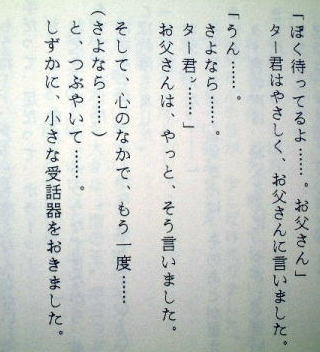 「ぼく待ってるよ……。お父さん」
ター君はやさしく、お父さんに言いました。
「うん……。
さよなら……。
ター君ン……」
お父さんは、やっと、そう言いました。
そして、心のなかで、もう一度……
（さよなら……）
と、つぶやいて……。
しずかに、小さな受話器をおきました。